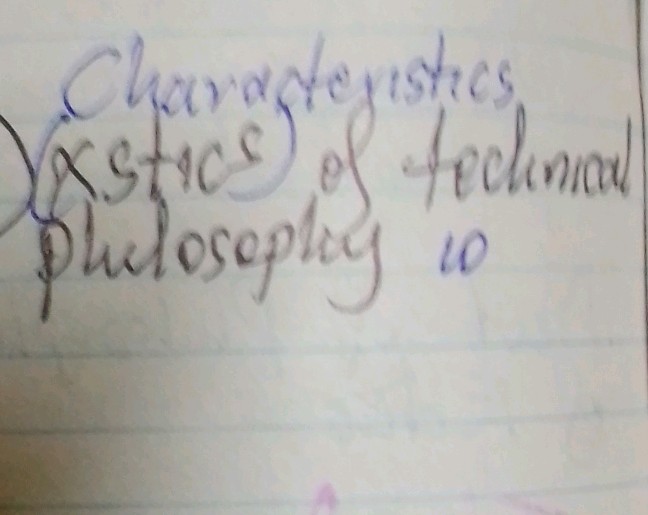 Characteristics
(xstics) of technical
philosophy 10